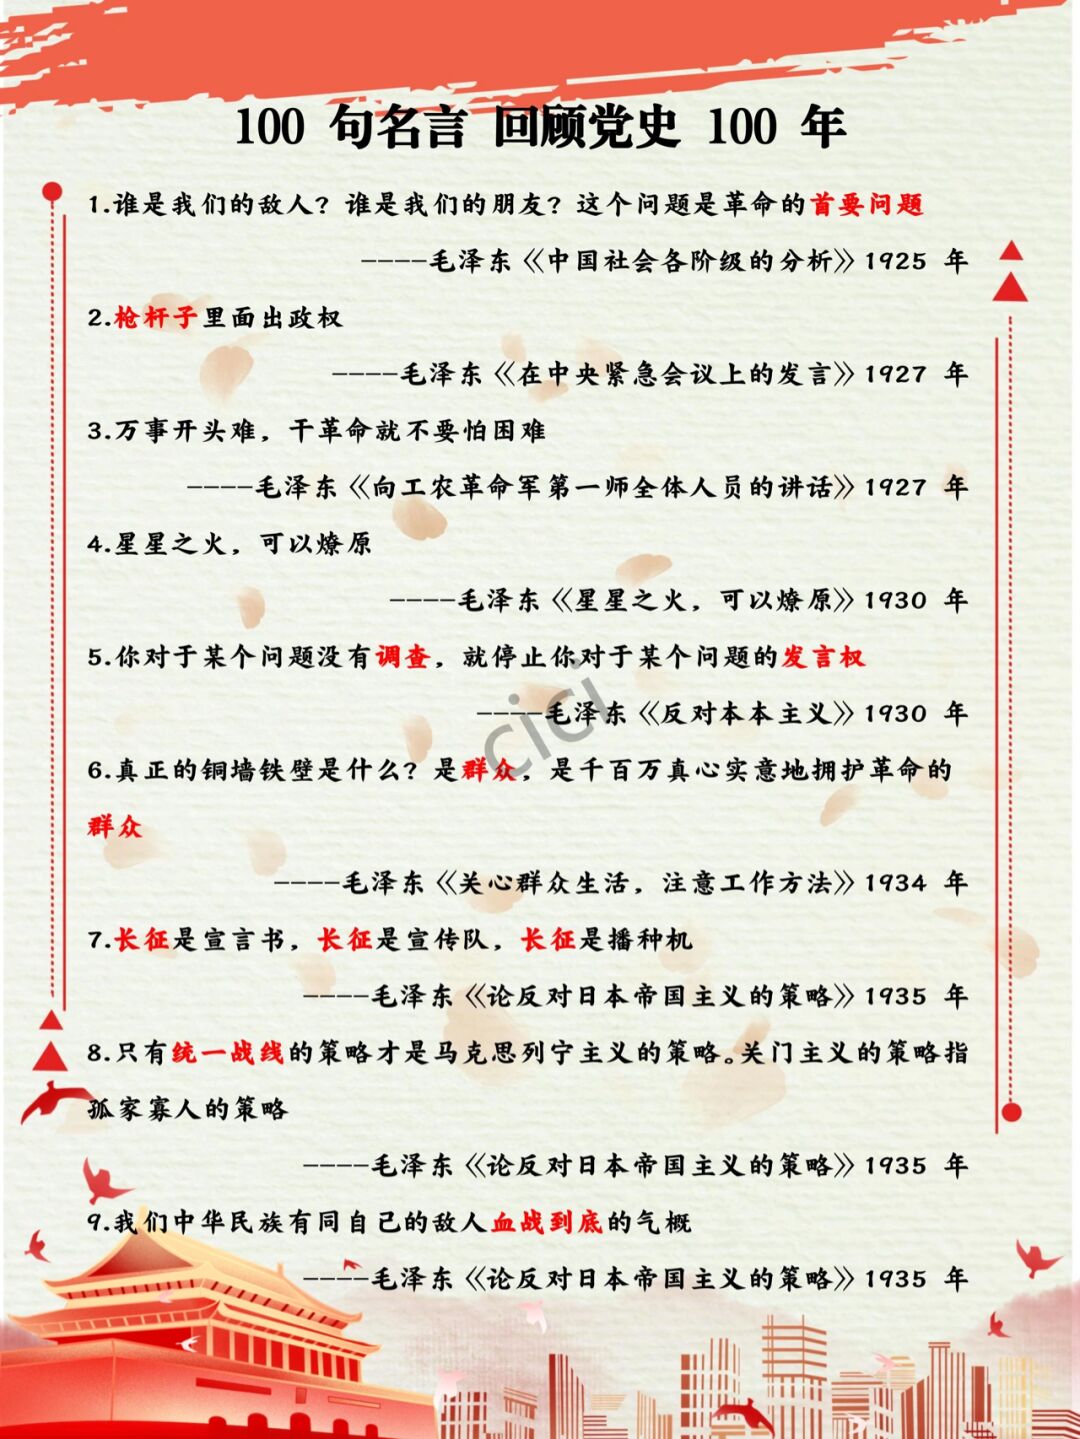 100 句名言 回顾党史 100 年
1.谁是我们的敌人？谁是我们的朋友？这个问题是革命的首要问题
----毛泽东《中国社会各阶级的分析》1925 年
2.枪杆子里面出政权
----毛泽东《在中央紧急会议上的发言》1927 年
3.万事开头难，干革命就不要怕困难
----毛泽东《向工农革命军第一师全体人员的讲话》1927 年
4.星星之火，可以燎原
----毛泽东《星星之火，可以燎原》1930 年
5.你对于某个问题没有调查，就停止你对于某个问题的发言权
----毛泽东《反对本本主义》1930 年
cici
6.真正的铜墙铁壁是什么？是群众，是千百万真心实意地拥护革命的
群众
----毛泽东《关心群众生活，注意工作方法》1934 年
7.长征是宣言书，长征是宣传队，长征是播种机
----毛泽东《论反对日本帝国主义的策略》1935 年
8.只有统一战线的策略才是马克思列宁主义的策略。关门主义的策略指
孤家寡人的策略
----毛泽东《论反对日本帝国主义的策略》1935 年
9.我们中华民族有同自己的敌人血战到底的气概
----毛泽东《论反对日本帝国主义的策略》1935 年